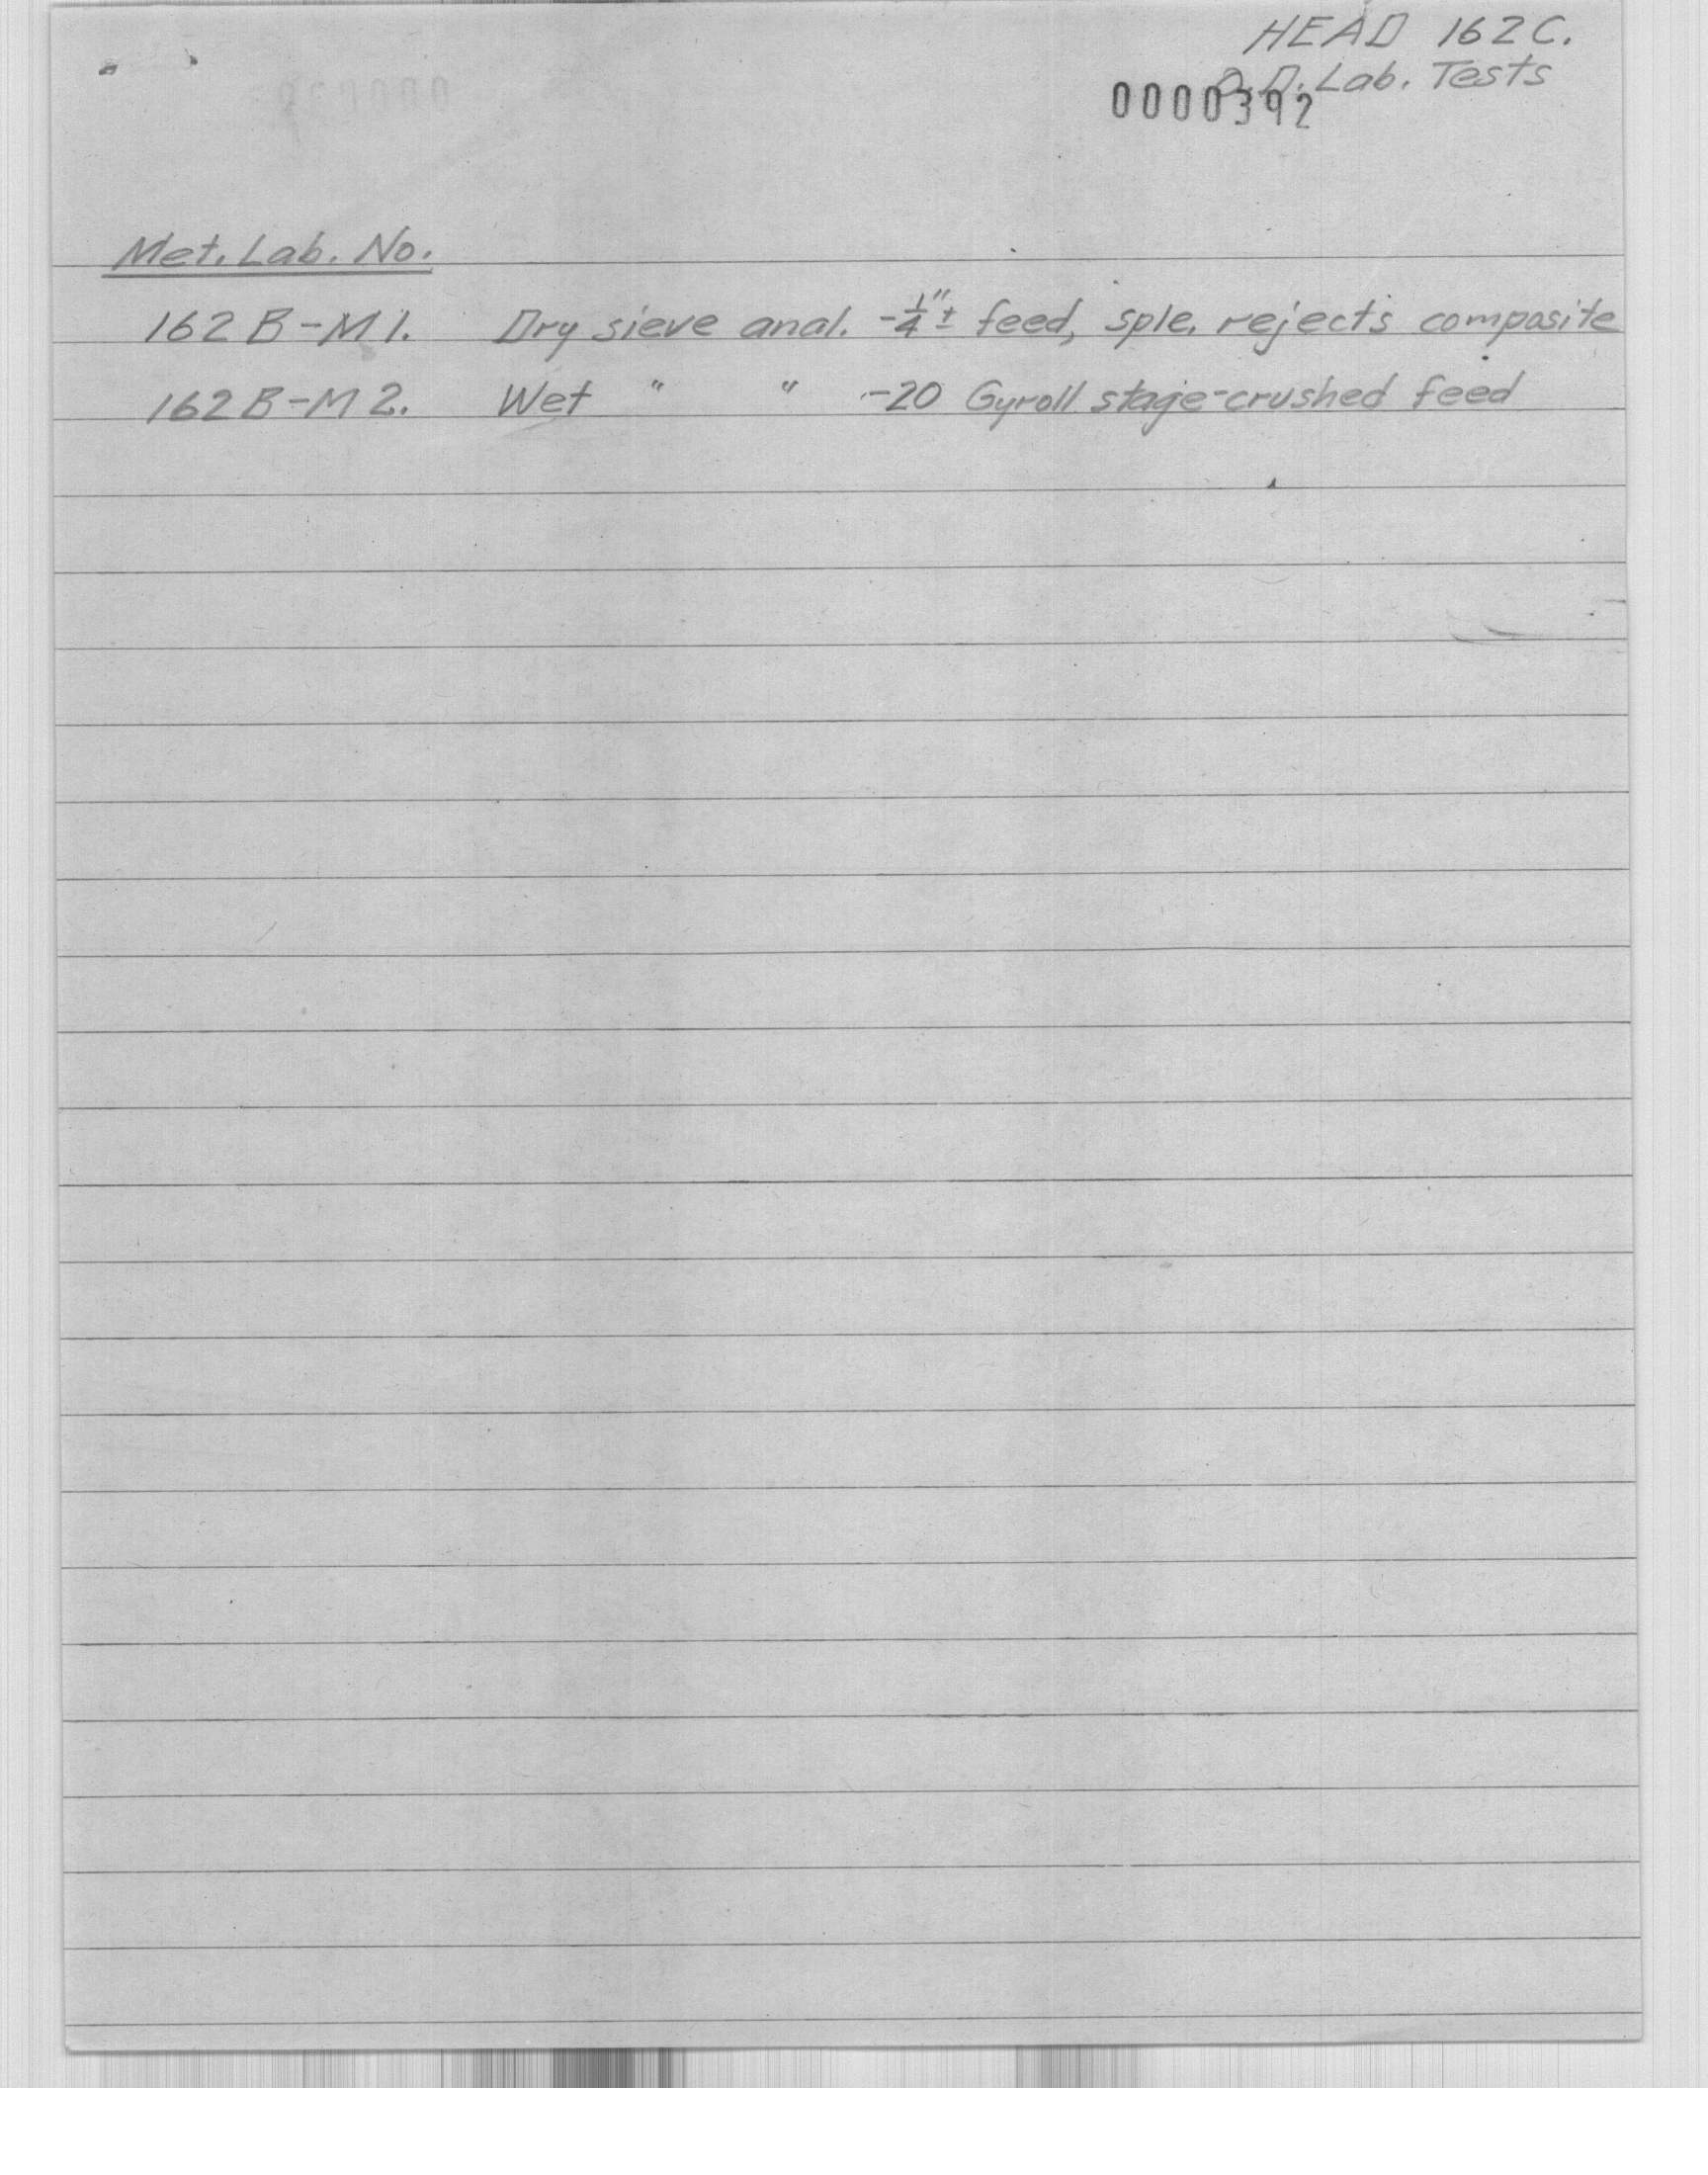 HEAD 162C.
D.D. Lab. Tests
0000392
Met. Lab. No.
162 B-M 1. Dry sieve anal. -1/4"± feed, sple. rejects composite
162 B-M 2. Wet " " -20 Gyroll stage-crushed feed